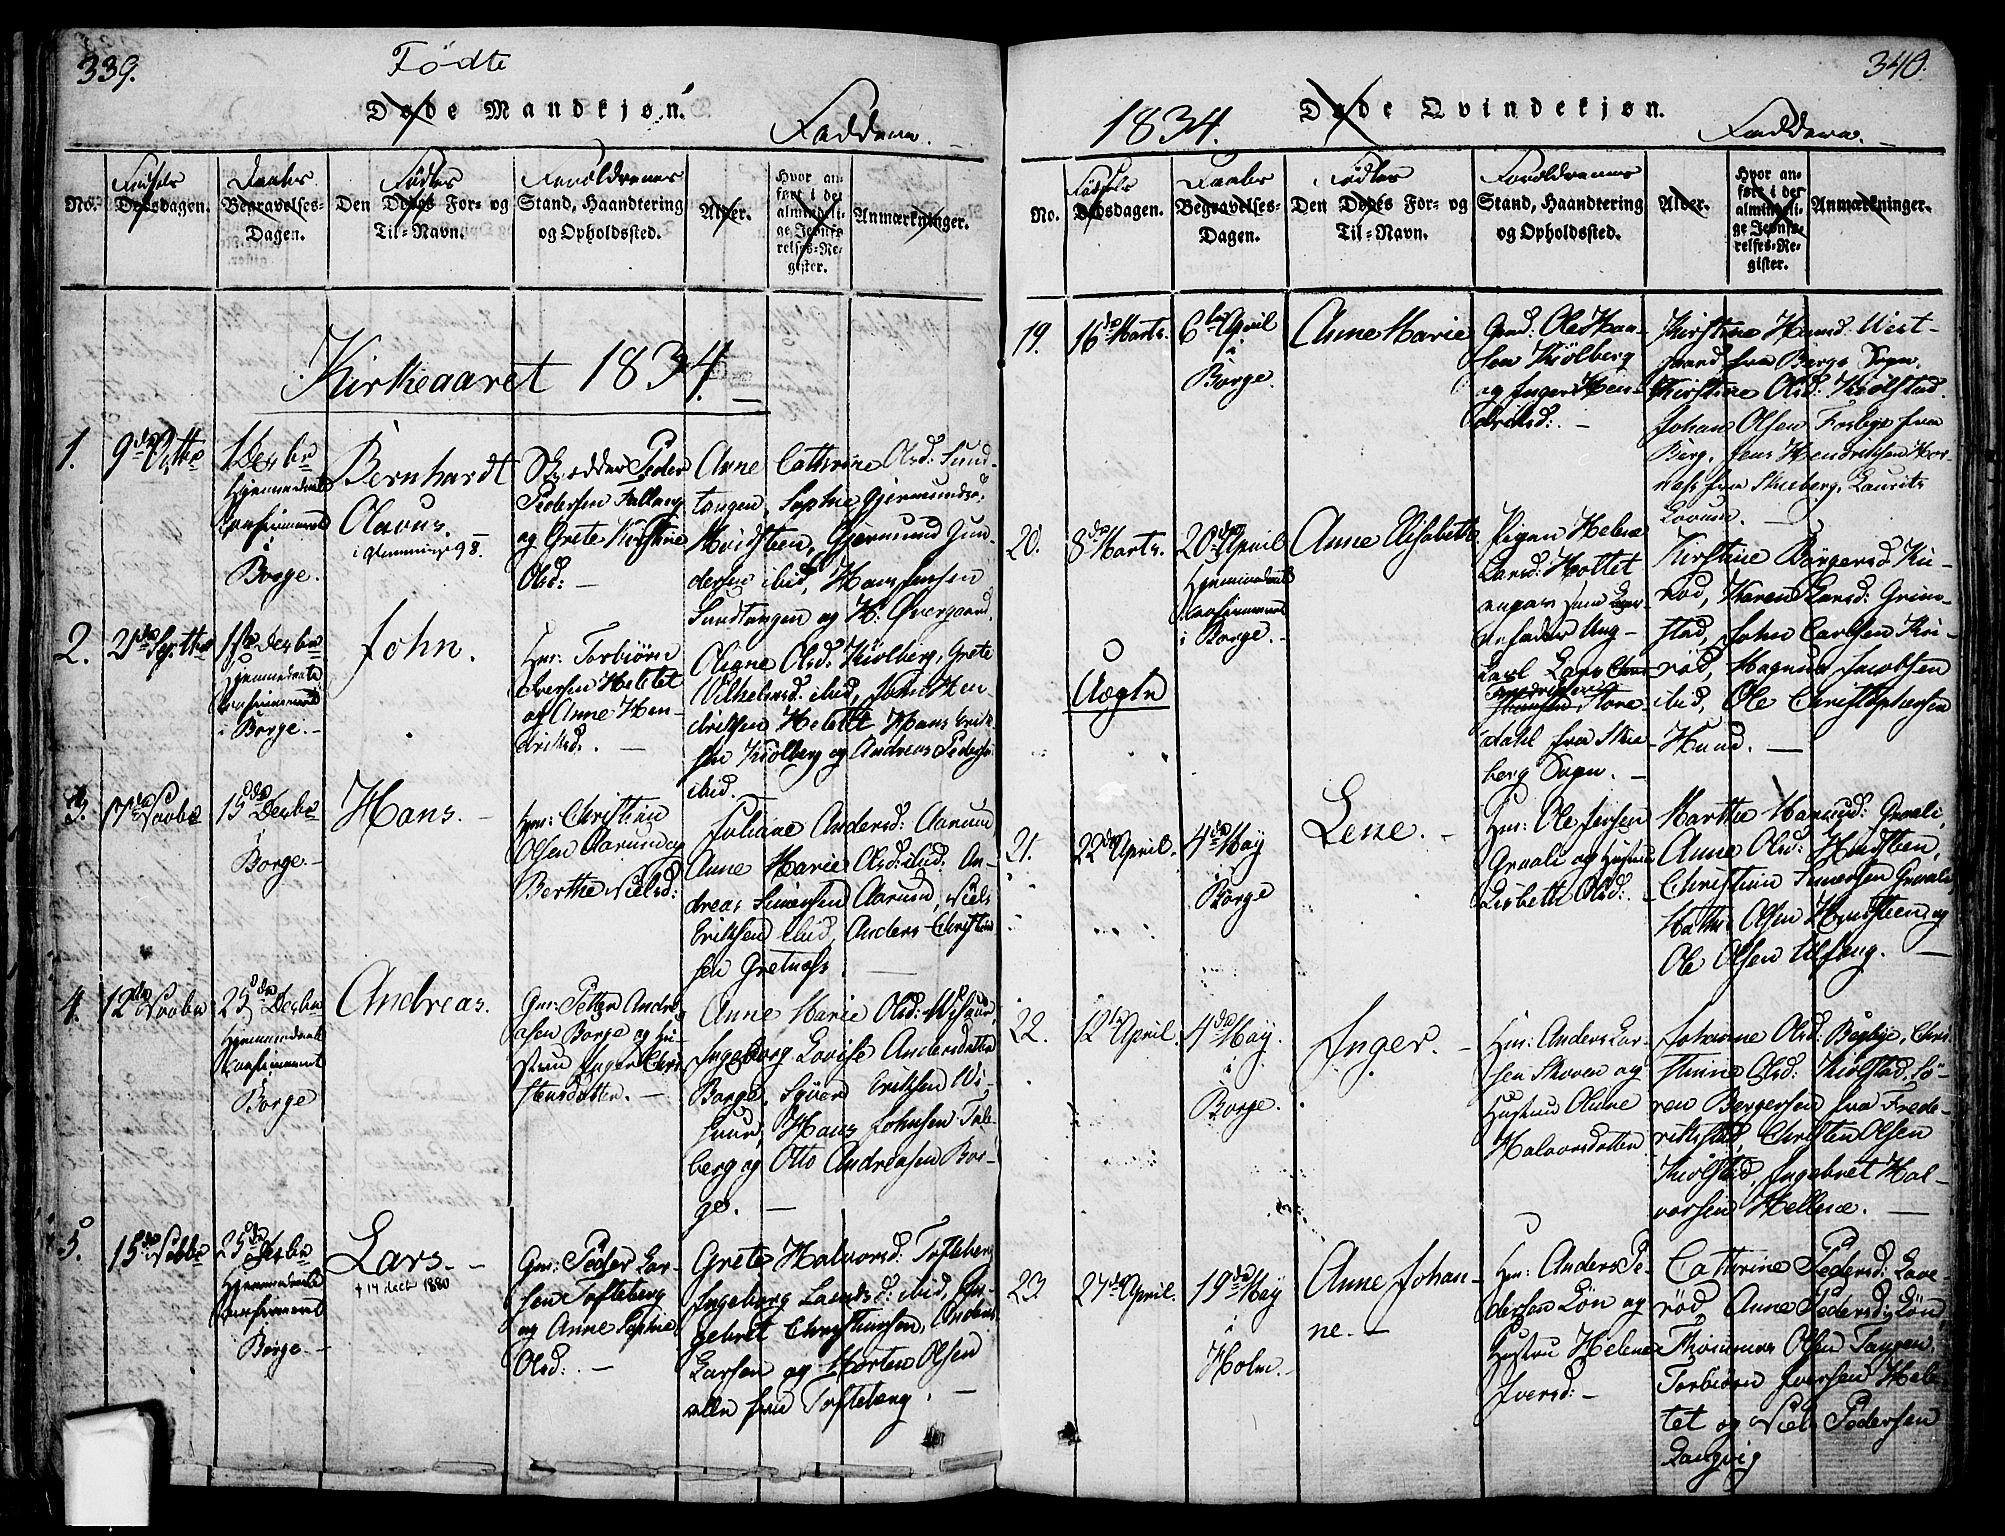 339.
Fødte
Døde Mandkjøn.
Faddere.
No.
Fødsels
Dødsdagen.
Daabs
Begravelses-
Dagen.
Fødtes
Den Dødes For- og
Til-Navn.
Forældrenes
Stand, Haandtering
og Opholdssted.
Alder.
Hvor an-
ført i det
almindeli-
ge Jevnfø-
relses-Re-
gister.
Anmærkninger.
Kirkeaaret 1834.
1.
9de
1 Decbr
Hjemmedøbt
Confirmeret
i
Borge.
Bernhardt
Olavus.
i Glemminge
Skrædder Peder
Pedersen
og Grete Kirstine
Olsd: —
Anne Cathrine Olsd: Sund-
tangen, Sophie Gjermundsd.
Hvidsteen, Gjermund Gun-
dersen ibid, Hans Jensen
Sundtangen og H: Overgaard.
2.
Hjemmedøbt
Confirmeret
i Borge. —
John.
Hm: Torbiørn
Iversen Heletet
og Anne Hen-
driksd. —
Oligne Olsd: Kiølberg, Grete
Vilhelmsd: ibid, John Hen
driksen Heletet, Hans Erik-
sen Kiølberg og Andreas Peders:
ibid.
3.
17de Novbr
15de Decbr
i
Borge. —
Hans. —
Hm: Christian
Olsen Aarum og
Berthe Nielsd:
Juliane Andersd: Aarum,
Anne Marie Olsd: ibid. An-
dreas Simensen Aarum, Niels
Eriksen ibid, Anders Christian
sen Gretnæss. —
4.
12de Novbr
25de Decbr
Hjemmedøbt
Confirmeret
i
Borge
Andreas.
Gm: Petter Andre-
asen Borge og Hu-
stru Inger Chri-
stensdatter. —
Anne Marie Olsd: Visuur,
Ingeborg Lovise Andersdatter
Borge, Syver Eriksen Vi-
suur, Hans Johnsen Tale-
berg og Otto Andreasen Bor-
ge. —
5.
15de Novbr
25de Decbr
Hjemmedøbt
Confirmeret
i
Borge. —
Lars. —
† 14 decb 1880
Gm: Peder Lar-
sen Tofteberg
og Anne Sophie
Olsd: —
Grete Halvorsd: Tofteberg
Ingeborg Larsd: ibid, In-
gebret Christiansen, Anders
Larsen og Morten Olsen
alle fra Tofteberg. —
340.
1834.
Døde Qvindekjøn.
Faddere.
No.
Fødsels
Dødsdagen.
Daabs
Begravelses-
Dagen.
Fødtes
Den Dødes For- og
Til-Navn.
Forældrenes
Stand, Haandtering
og Opholdssted.
Alder.
Hvor an-
ført i det
almindeli-
ge Jevnfø-
relses-Re-
gister.
Anmærkninger.
19.
16de Marts.
6te April
i
Borge.
Anne Marie
Gmd: Ole Han-
sen Kiølberg
og Inger Hen-
driksd: —
Kirstine Hansd: West-
gaard fra Borge Sogn.
Kirstine Olsd: Kiølstad.
Johan Olsen Fosbye fra
Berg, Jens Hendriksen Hor-
næss fra Skieberg, Laurits
20.
8de Marts.
20de April
Hjemmedøbt
Confirmeret
i Borge. —
Uægte
Anne Elisabeth
Pigen Helene
Larsd: Hottet
angav som Bar-
nefader Ung-
karl Lars
Hansen, Store-
dahl fra Skie-
berg Sogn. —
Kirstine Børgersd
Karen Larsd: Grim-
stad, John Carlsen Kri-
rød, Magnus Jacobsen
ibid, Ole Christophersen
Hund. —
21.
22de April.
4de May
i
Borge
Lene. —
Hm: Ole Jensen
Graali og Hustru
Lisbeth Olsd: —
Marthe Hansd: Graali,
Anne Olsd: Hvidsteen,
Christian Simensen Graali,
Mathis Olsen Hvidsteen og
Ole Olsen Ulfeng. —
22.
12te April.
4de May.
i
Borge.
Inger. —
Hm: Anders Lar-
sen Skoven og
Hustru Olivne
Halvorsdatter
Johanne Olsd: Begbye, Chris-
tinne Olsd: Kiølstad, Sø-
ren Bergersen fra Frede-
rikstad, Christen Olsen
Kiølstad, Ingebret Hal-
vorsen Hellene. —
23.
27de April.
19de May
i
Holm. —
Anne Johan-
ne. —
Hm: Anders Pe-
dersen Løn og
Hustru Helene
Iversd: —
Cathrine Pedersd: Love-
rød, Anne Pedersd: Løn
Thommes Olsen Tangen,
Torbiørn Iversen Hele-
tet og Niels Pedersen
Langvig